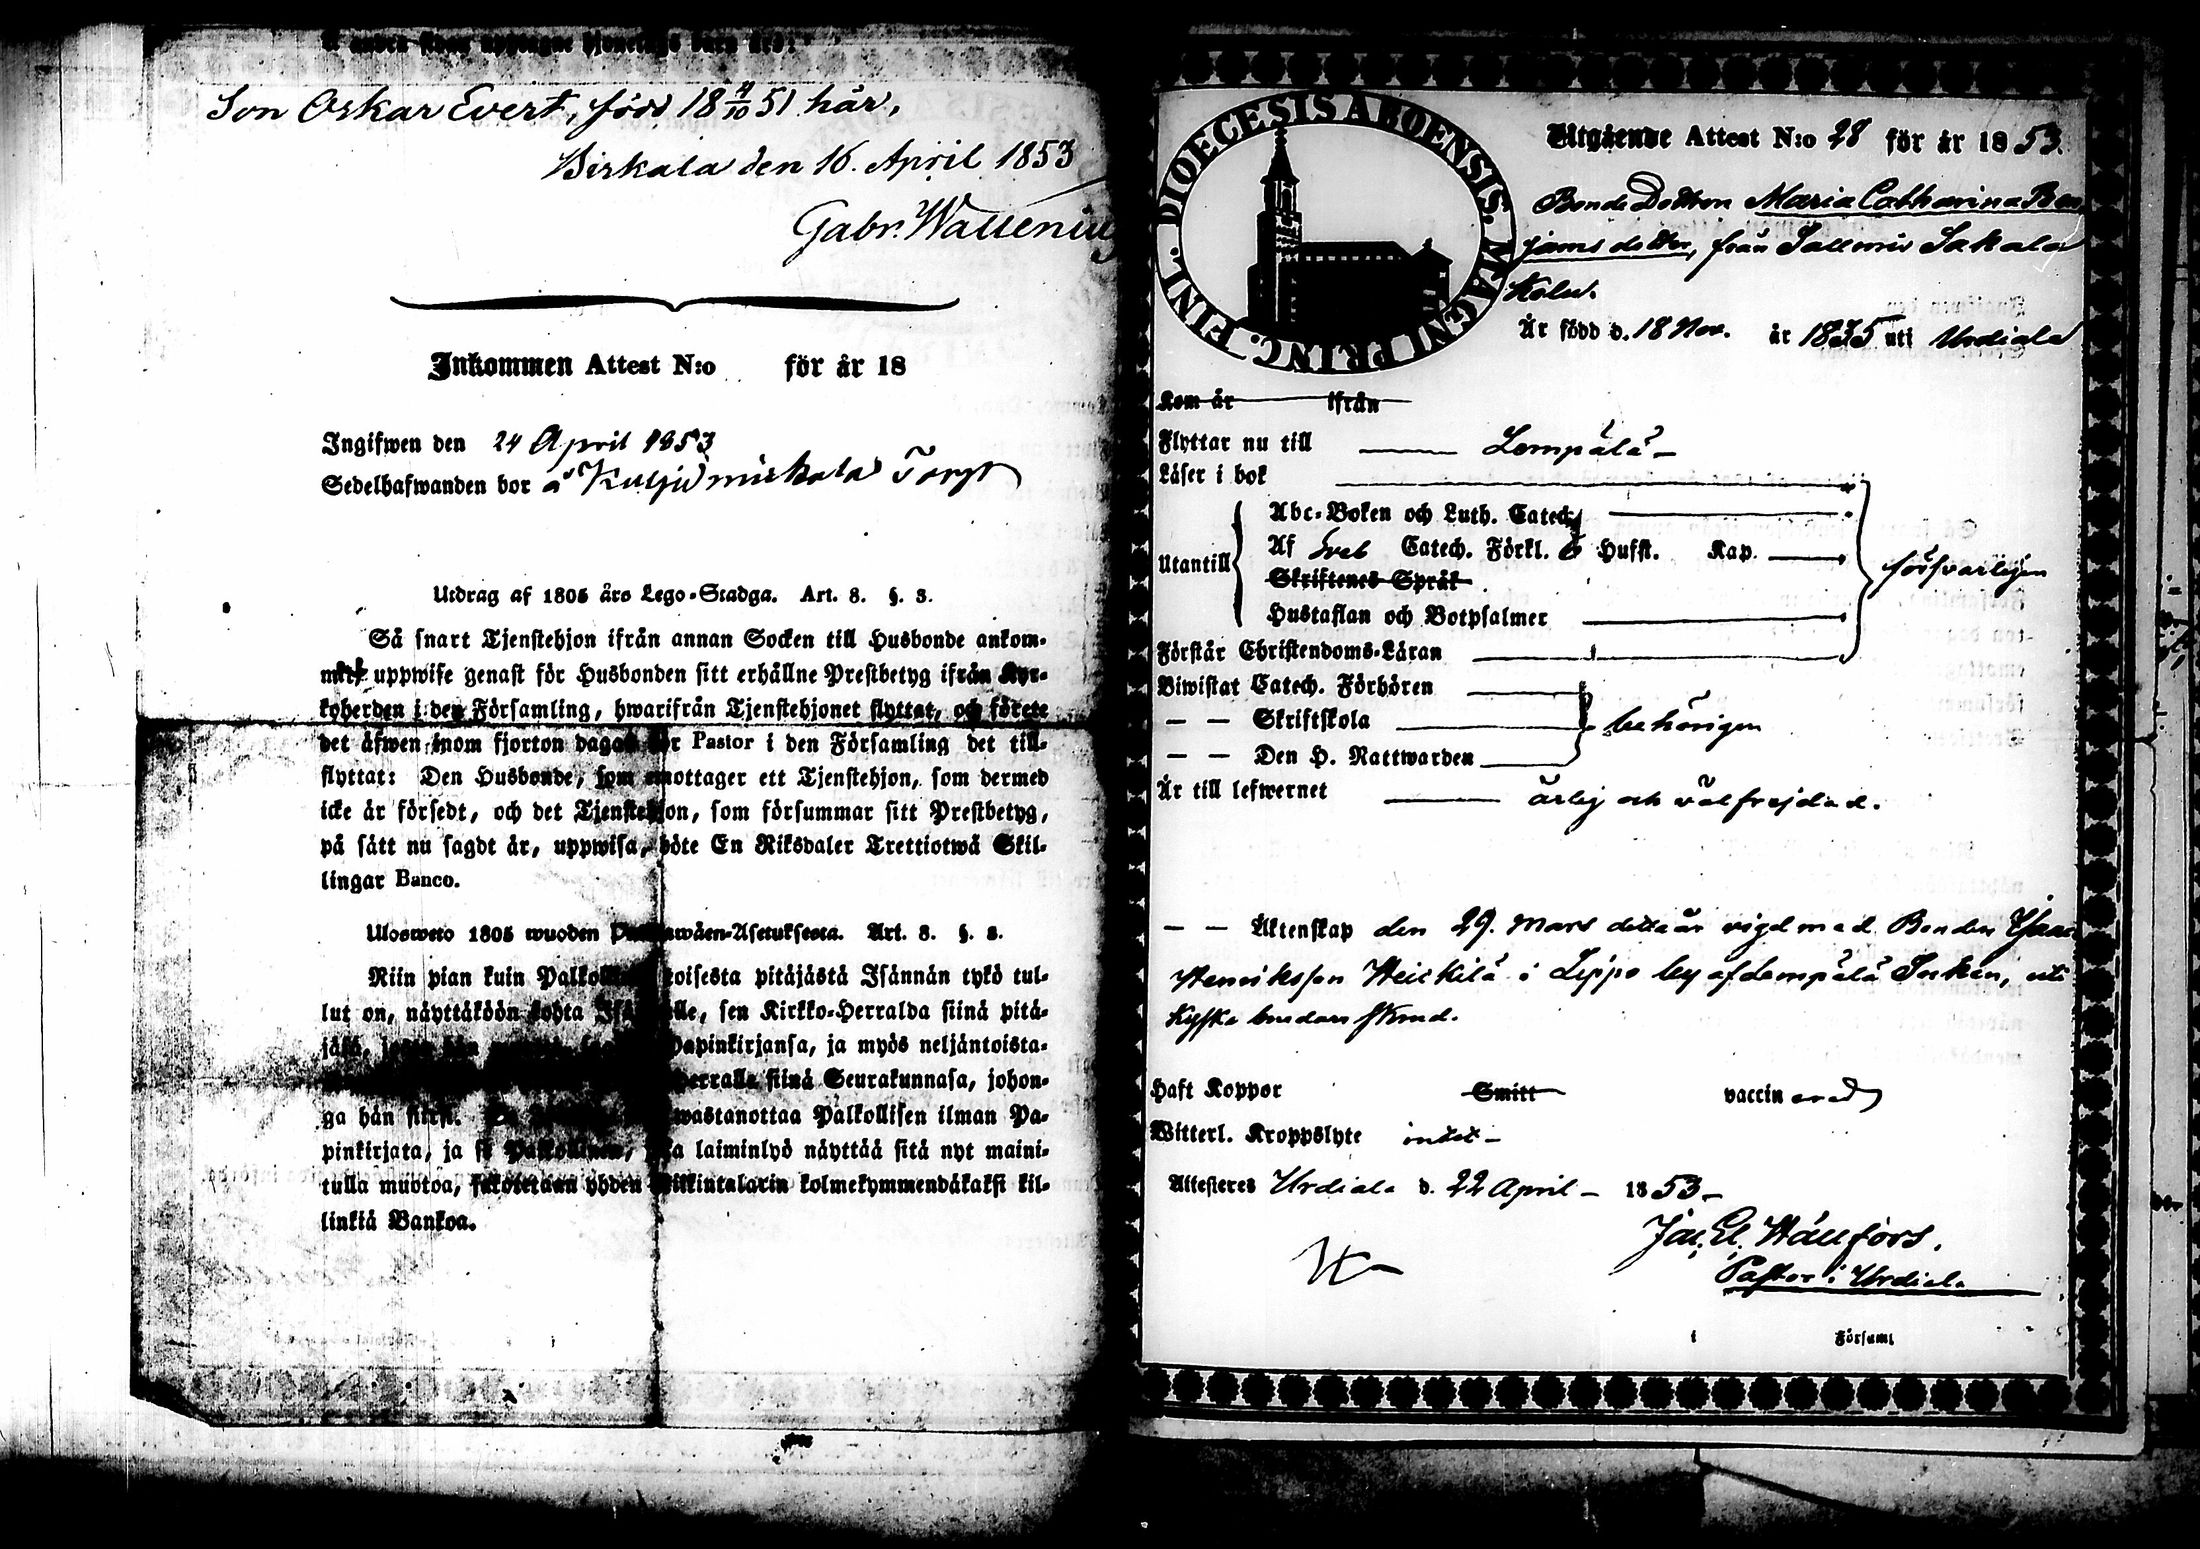 å andra sidan upptagne
Son Oskar Evert, född 18 4/10 51 här,
Birkala den 16. April 1853
Gabr. Wallenius
Inkommen Attest N:o för år 18
Ingifwen den 24 April 1853
Sedelhafwanden bor å Kuljumirkala Torp
Utdrag af 1805 års Lego-Stadga. Art. 8. §. 3.
Så snart Tjenstehjon ifrån annan Socken till Husbonde ankom-
mit uppwise genast för Husbonden sitt erhållne Prestbetyg ifrån Kyr-
koherden i den Församling, hwarifrån Tjenstehjonet flyttat, och förete
det äfwen inom fjorton dagar för Pastor i den Församling det till-
flyttat: Den Husbonde, som emottager ett Tjenstehjon, som dermed
icke är försedt, och det Tjenstehjon, som försummar sitt Prestbetyg,
på sätt nu sagdt är, uppwisa, böte En Riksdaler Trettiotwå Skil-
lingar Banco.
Ulosweto 1805 wuoden Asetuksesta. Art. 8. §. 3.
Niin pian kuin Palkollinen toisesta pitäjästä Isännän tykö tul-
lut on, näyttäköön kohta Isännälle, sen Kirkko-Herralda siinä pitä-
jäsä, Papinkirjansa, ja myös neljäntoista-
Herralle siinä Seurakunnasa, johon-
ga hän siirsi. wastanottaa Palkollisen ilman Pa-
pinkirjata, ja se Palkollinen, joka laiminlyö näyttää sitä nyt maini-
tulla muotoa, sakotetaan yhden Riikintalarin kolmekymmendäkaksi kil-
linkiä Bankoa.
DIOECESIS ABOENSIS. MAGNI PRINC. FINL.
Utgående Attest N:o 28 för år 1853.
Bonde Dottren Maria Catharina Ben
jamsdotter, från Sallmis Sakala
Kolu.
Är född d. 18 Nov. år 1835 uti Urdiala
Kom år ifrån
Flyttar nu till Lempälä
Läser i bok
Utantill
Abc-Boken och Luth. Catech.
Af Sveb Catech. Förkl. 6 Hufst. Kap.
Skriftenes Språk
Hustaflan och Botpsalmer
försvarligen
Förstår Christendoms-Läran
Biwistat Catech. Förhören
— — Skriftskola
behörigen
— — Den H. Nattwarden
Är till lefwernet ärlig och välfrejdad.
— — Äktenskap den 29. Mars detta år vigd med Bonden Isaac
Henriksson Heickilä i Lippo by af Lempälä Socken, uti
Kyske brudars stånd.
Haft Koppor Smitt vaccinerad
Witterl. Kroppslyte intet
Attesteres Urdiala d. 22 April 1853
Jac. El. Hällfors.
Pastor i Urdiala
i Församl